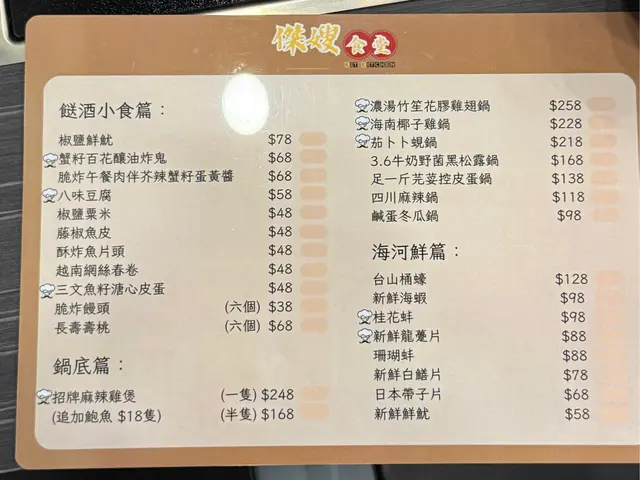 傑嫂食堂
餸酒小食篇：
椒鹽鮮魷 $78
蟹籽百花釀油炸鬼 $68
脆炸午餐肉伴芥辣蟹籽蛋黃醬 $68
八味豆腐 $58
椒鹽粟米 $48
藤椒魚皮 $48
酥炸魚片頭 $48
越南網絲春卷 $48
三文魚籽溏心皮蛋 $48
脆炸饅頭 (六個) $38
長壽壽桃 (六個) $68
鍋底篇：
招牌麻辣雞煲 (一隻) $248
(追加鮑魚 $18隻) (半隻) $168
濃湯竹笙花膠雞翅鍋 $258
海南椰子雞鍋 $228
茄卜卜蜆鍋 $218
3.6牛奶野菌黑松露鍋 $168
足一斤芫荽控皮蛋鍋 $138
四川麻辣鍋 $118
鹹蛋冬瓜鍋 $98
海河鮮篇：
台山桶蠔 $128
新鮮海蝦 $98
桂花蚌 $98
新鮮龍躉片 $88
珊瑚蚌 $88
新鮮白鱔片 $78
日本帶子片 $68
新鮮鮮魷 $58